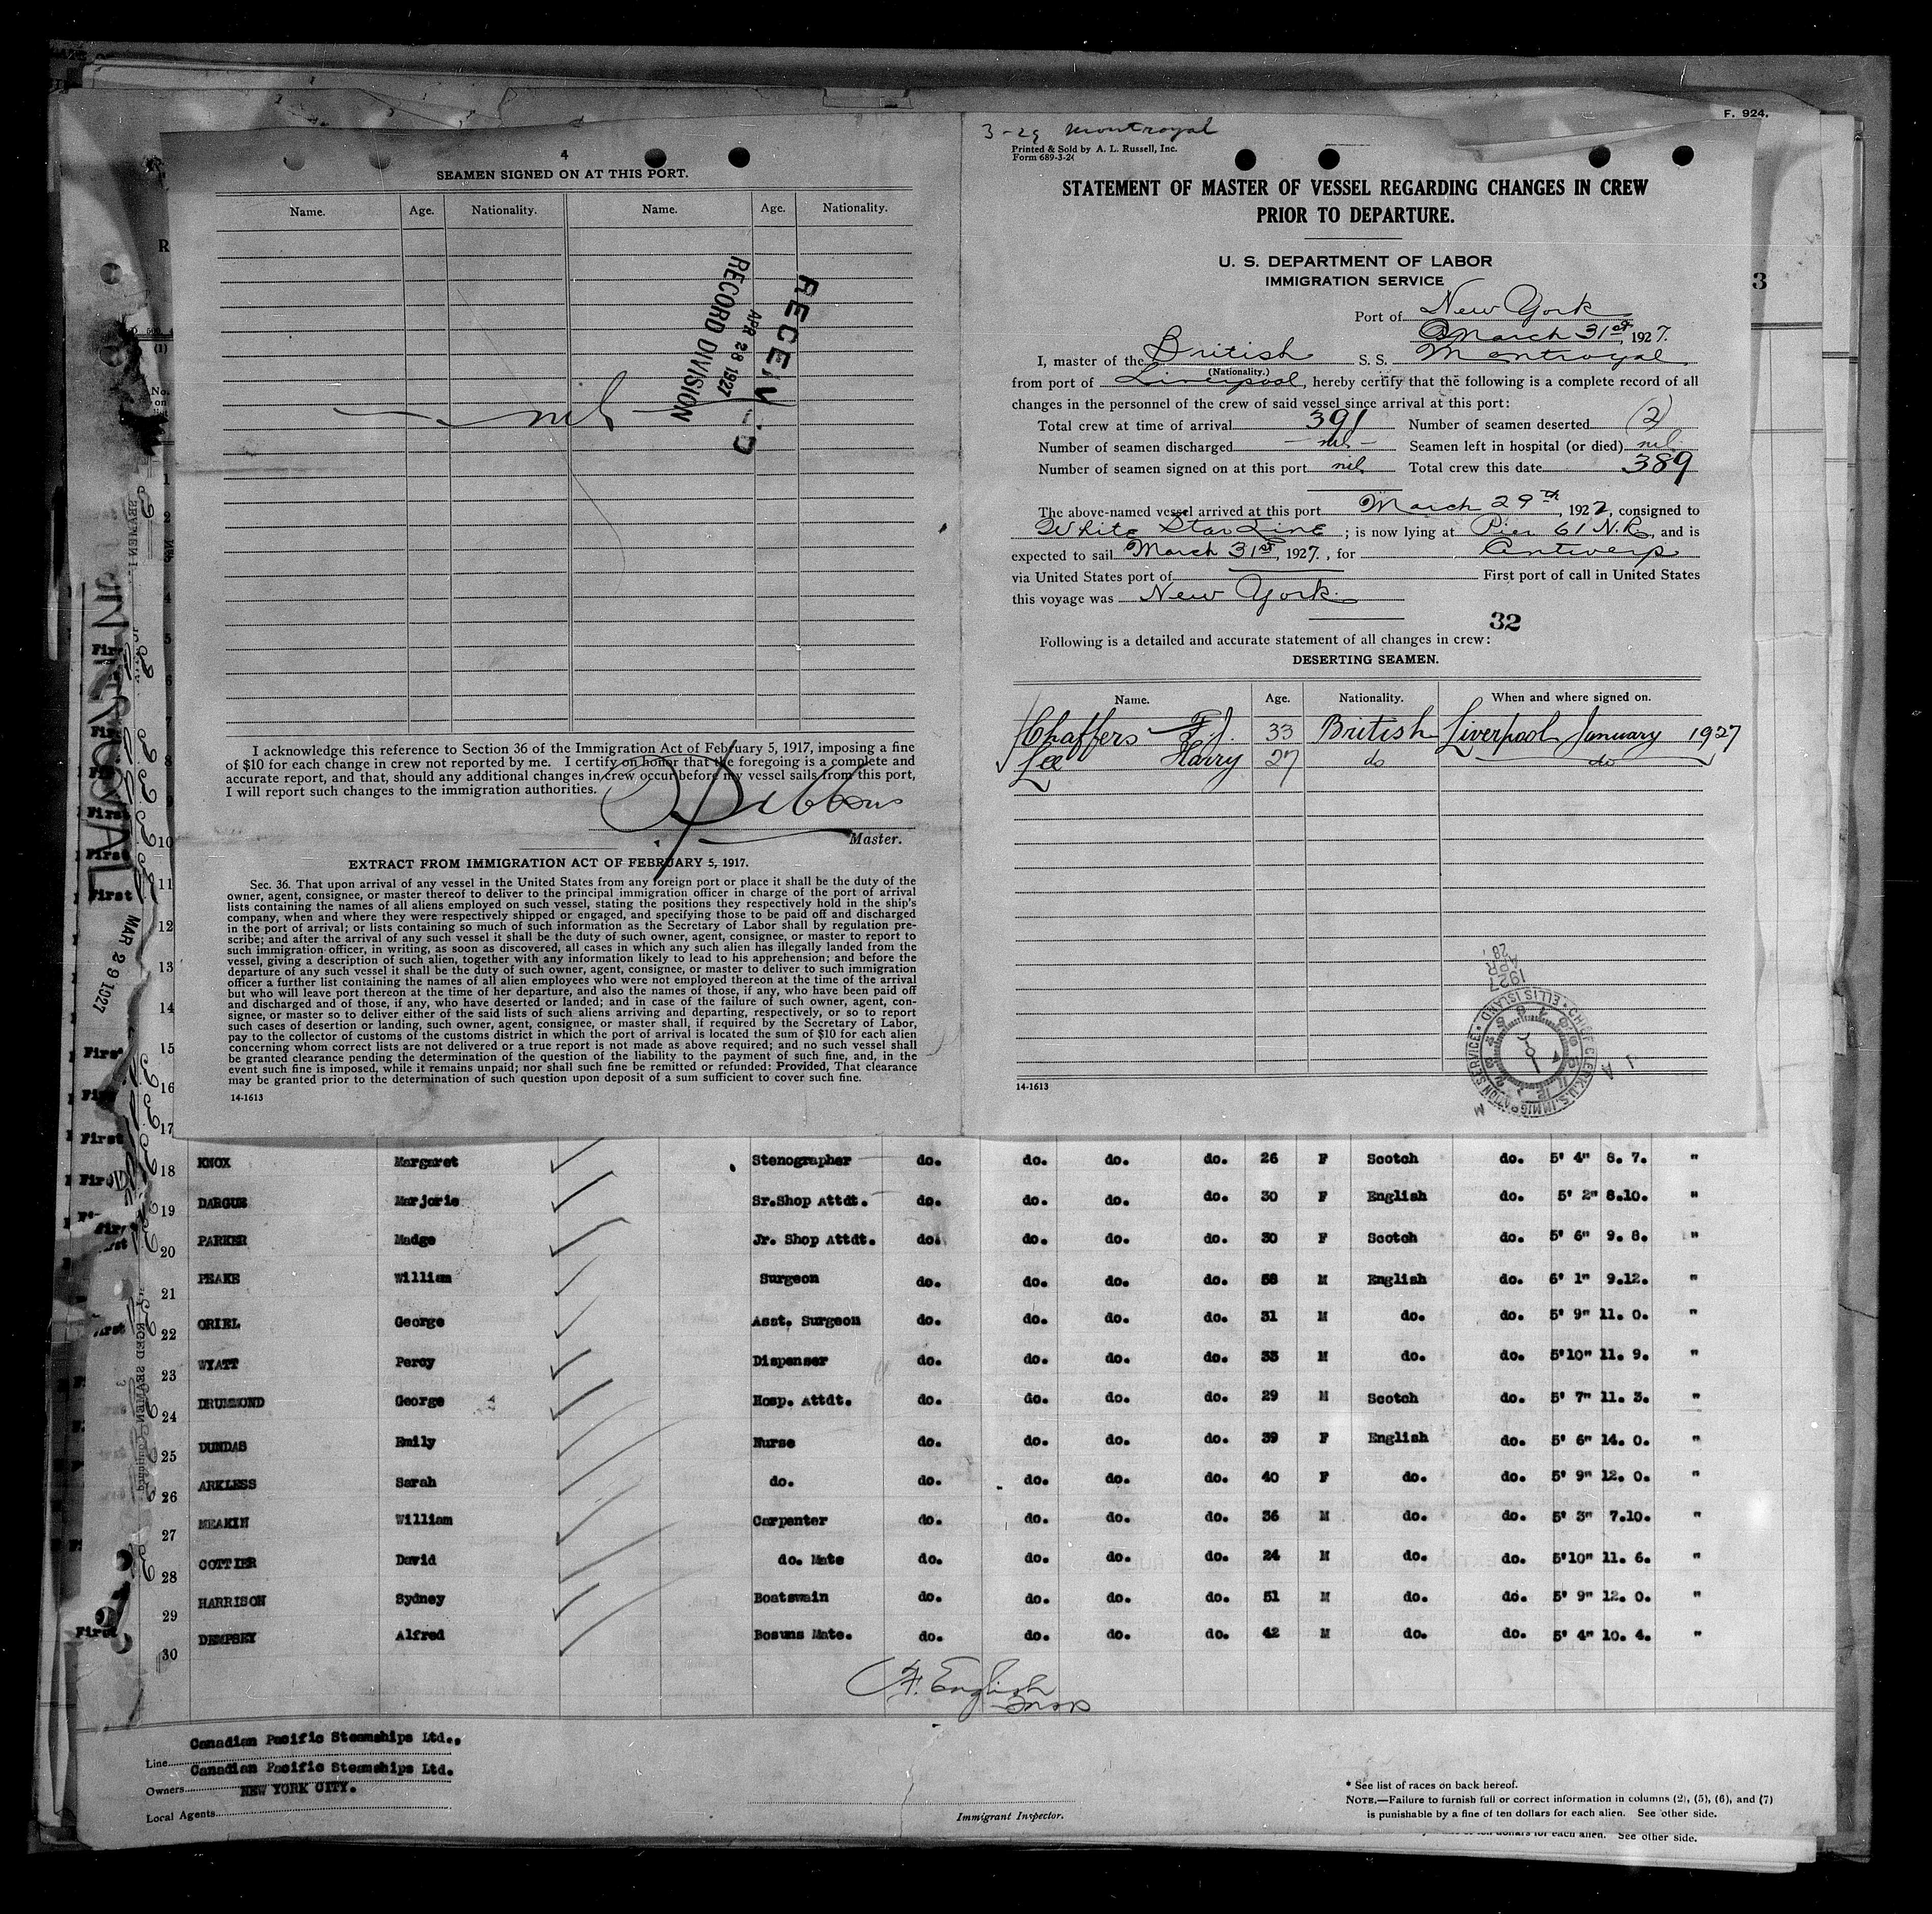 F. 924.
4
SEAMEN SIGNED ON AT THIS PORT.
Name. Age. Nationality. Name. Age. Nationality.
RECEIVED
APR 28 1927
RECORD DIVISION
nil
I acknowledge this reference to Section 36 of the Immigration Act of February 5, 1917, imposing a fine
of $10 for each change in crew not reported by me. I certify on honor that the foregoing is a complete and
accurate report, and that, should any additional changes in crew occur before my vessel sails from this port,
I will report such changes to the immigration authorities.
Master.
EXTRACT FROM IMMIGRATION ACT OF FEBRUARY 5, 1917.
Sec. 36. That upon arrival of any vessel in the United States from any foreign port or place it shall be the duty of the
owner, agent, consignee, or master thereof to deliver to the principal immigration officer in charge of the port of arrival
lists containing the names of all aliens employed on such vessel, stating the positions they respectively hold in the ship's
company, when and where they were respectively shipped or engaged, and specifying those to be paid off and discharged
in the port of arrival; or lists containing so much of such information as the Secretary of Labor shall by regulation pre-
scribe; and after the arrival of any such vessel it shall be the duty of such owner, agent, consignee, or master to report to
such immigration officer, in writing, as soon as discovered, all cases in which any such alien has illegally landed from the
vessel, giving a description of such alien, together with any information likely to lead to his apprehension; and before the
departure of any such vessel it shall be the duty of such owner, agent, consignee, or master to deliver to such immigration
officer a further list containing the names of all alien employees who were not employed thereon at the time of the arrival
but who will leave port thereon at the time of her departure, and also the names of those, if any, who have been paid off
and discharged and of those, if any, who have deserted or landed; and in case of the failure of such owner, agent, con-
signee, or master so to deliver either of the said lists of such aliens arriving and departing, respectively, or so to report
such cases of desertion or landing, such owner, agent, consignee, or master shall, if required by the Secretary of Labor,
pay to the collector of customs of the customs district in which the port of arrival is located the sum of $10 for each alien
concerning whom correct lists are not delivered or a true report is not made as above required; and no such vessel shall
be granted clearance pending the determination of the question of the liability to the payment of such fine, and, in the
event such fine is imposed, while it remains unpaid; nor shall such fine be remitted or refunded: Provided, That clearance
may be granted prior to the determination of such question upon deposit of a sum sufficient to cover such fine.
14-1613
3-29 Montroyal
Printed & Sold by A. L. Russell, Inc.
Form 689-3-26
STATEMENT OF MASTER OF VESSEL REGARDING CHANGES IN CREW
PRIOR TO DEPARTURE.
U. S. DEPARTMENT OF LABOR
IMMIGRATION SERVICE
Port of New York
March 31st, 1927.
I, master of the British S. S. Montroyal
(Nationality.)
from port of Liverpool, hereby certify that the following is a complete record of all
changes in the personnel of the crew of said vessel since arrival at this port:
Total crew at time of arrival 391 Number of seamen deserted (2)
Number of seamen discharged - nil - Seamen left in hospital (or died) nil
Number of seamen signed on at this port nil Total crew this date 389
The above-named vessel arrived at this port March 29th, 1927, consigned to
White Star Line; is now lying at Pier 61 N.R., and is
expected to sail March 31st, 1927., for Antwerp
via United States port of First port of call in United States
this voyage was New York.
32
Following is a detailed and accurate statement of all changes in crew:
DESERTING SEAMEN.
Name. Age. Nationality. When and where signed on.
Chaffers F.J. 33 British Liverpool January 1927
Lee Harry 27 do do
14-1613
CHIEF CLERK, U.S. IMMIGRATION SERVICE • ELLIS ISLAND
1927 APR 28
3
MONTROYAL
MAR 29 1927
18 KNOX Margaret Stenographer do. do. do. do. 26 F Scotch do. 5' 4" 8. 7. "
19 DARGUE Marjorie Sr.Shop Attdt. do. do. do. do. 30 F English do. 5' 2" 8.10. "
20 PARKER Madge Jr. Shop Attdt. do. do. do. do. 30 F Scotch do. 5' 6" 9. 8. "
21 PEAKE William Surgeon do. do. do. do. 58 M English do. 6' 1" 9.12. "
22 ORIEL George Asst. Surgeon do. do. do. do. 31 M do. do. 5' 9" 11. 0. "
23 WYATT Percy Dispenser do. do. do. do. 33 M do. do. 5'10" 11. 9. "
24 DRUMMOND George Hosp. Attdt. do. do. do. do. 29 M Scotch do. 5' 7" 11. 3. "
25 DUNDAS Emily Nurse do. do. do. do. 39 F English do. 5' 6" 14. 0. "
26 ARKLESS Sarah do. do. do. do. do. 40 F do. do. 5' 9" 12. 0. "
27 MEAKIN William Carpenter do. do. do. do. 36 M do. do. 5' 3" 7.10. "
28 COTTIER David do. Mate do. do. do. do. 24 M do. do. 5'10" 11. 6. "
29 HARRISON Sydney Boatswain do. do. do. do. 51 M do. do. 5' 9" 12. 0. "
30 DEMPSEY Alfred Bosuns Mate. do. do. do. do. 42 M do. do. 5' 4" 10. 4. "
English
Line Canadian Pacific Steamships Ltd.,
Owners Canadian Pacific Steamships Ltd.
Local Agents NEW YORK CITY.
Immigrant Inspector.
* See list of races on back hereof.
NOTE.—Failure to furnish full or correct information in columns (2), (5), (6), and (7)
is punishable by a fine of ten dollars for each alien. See other side.
dollars for each alien. See other side.